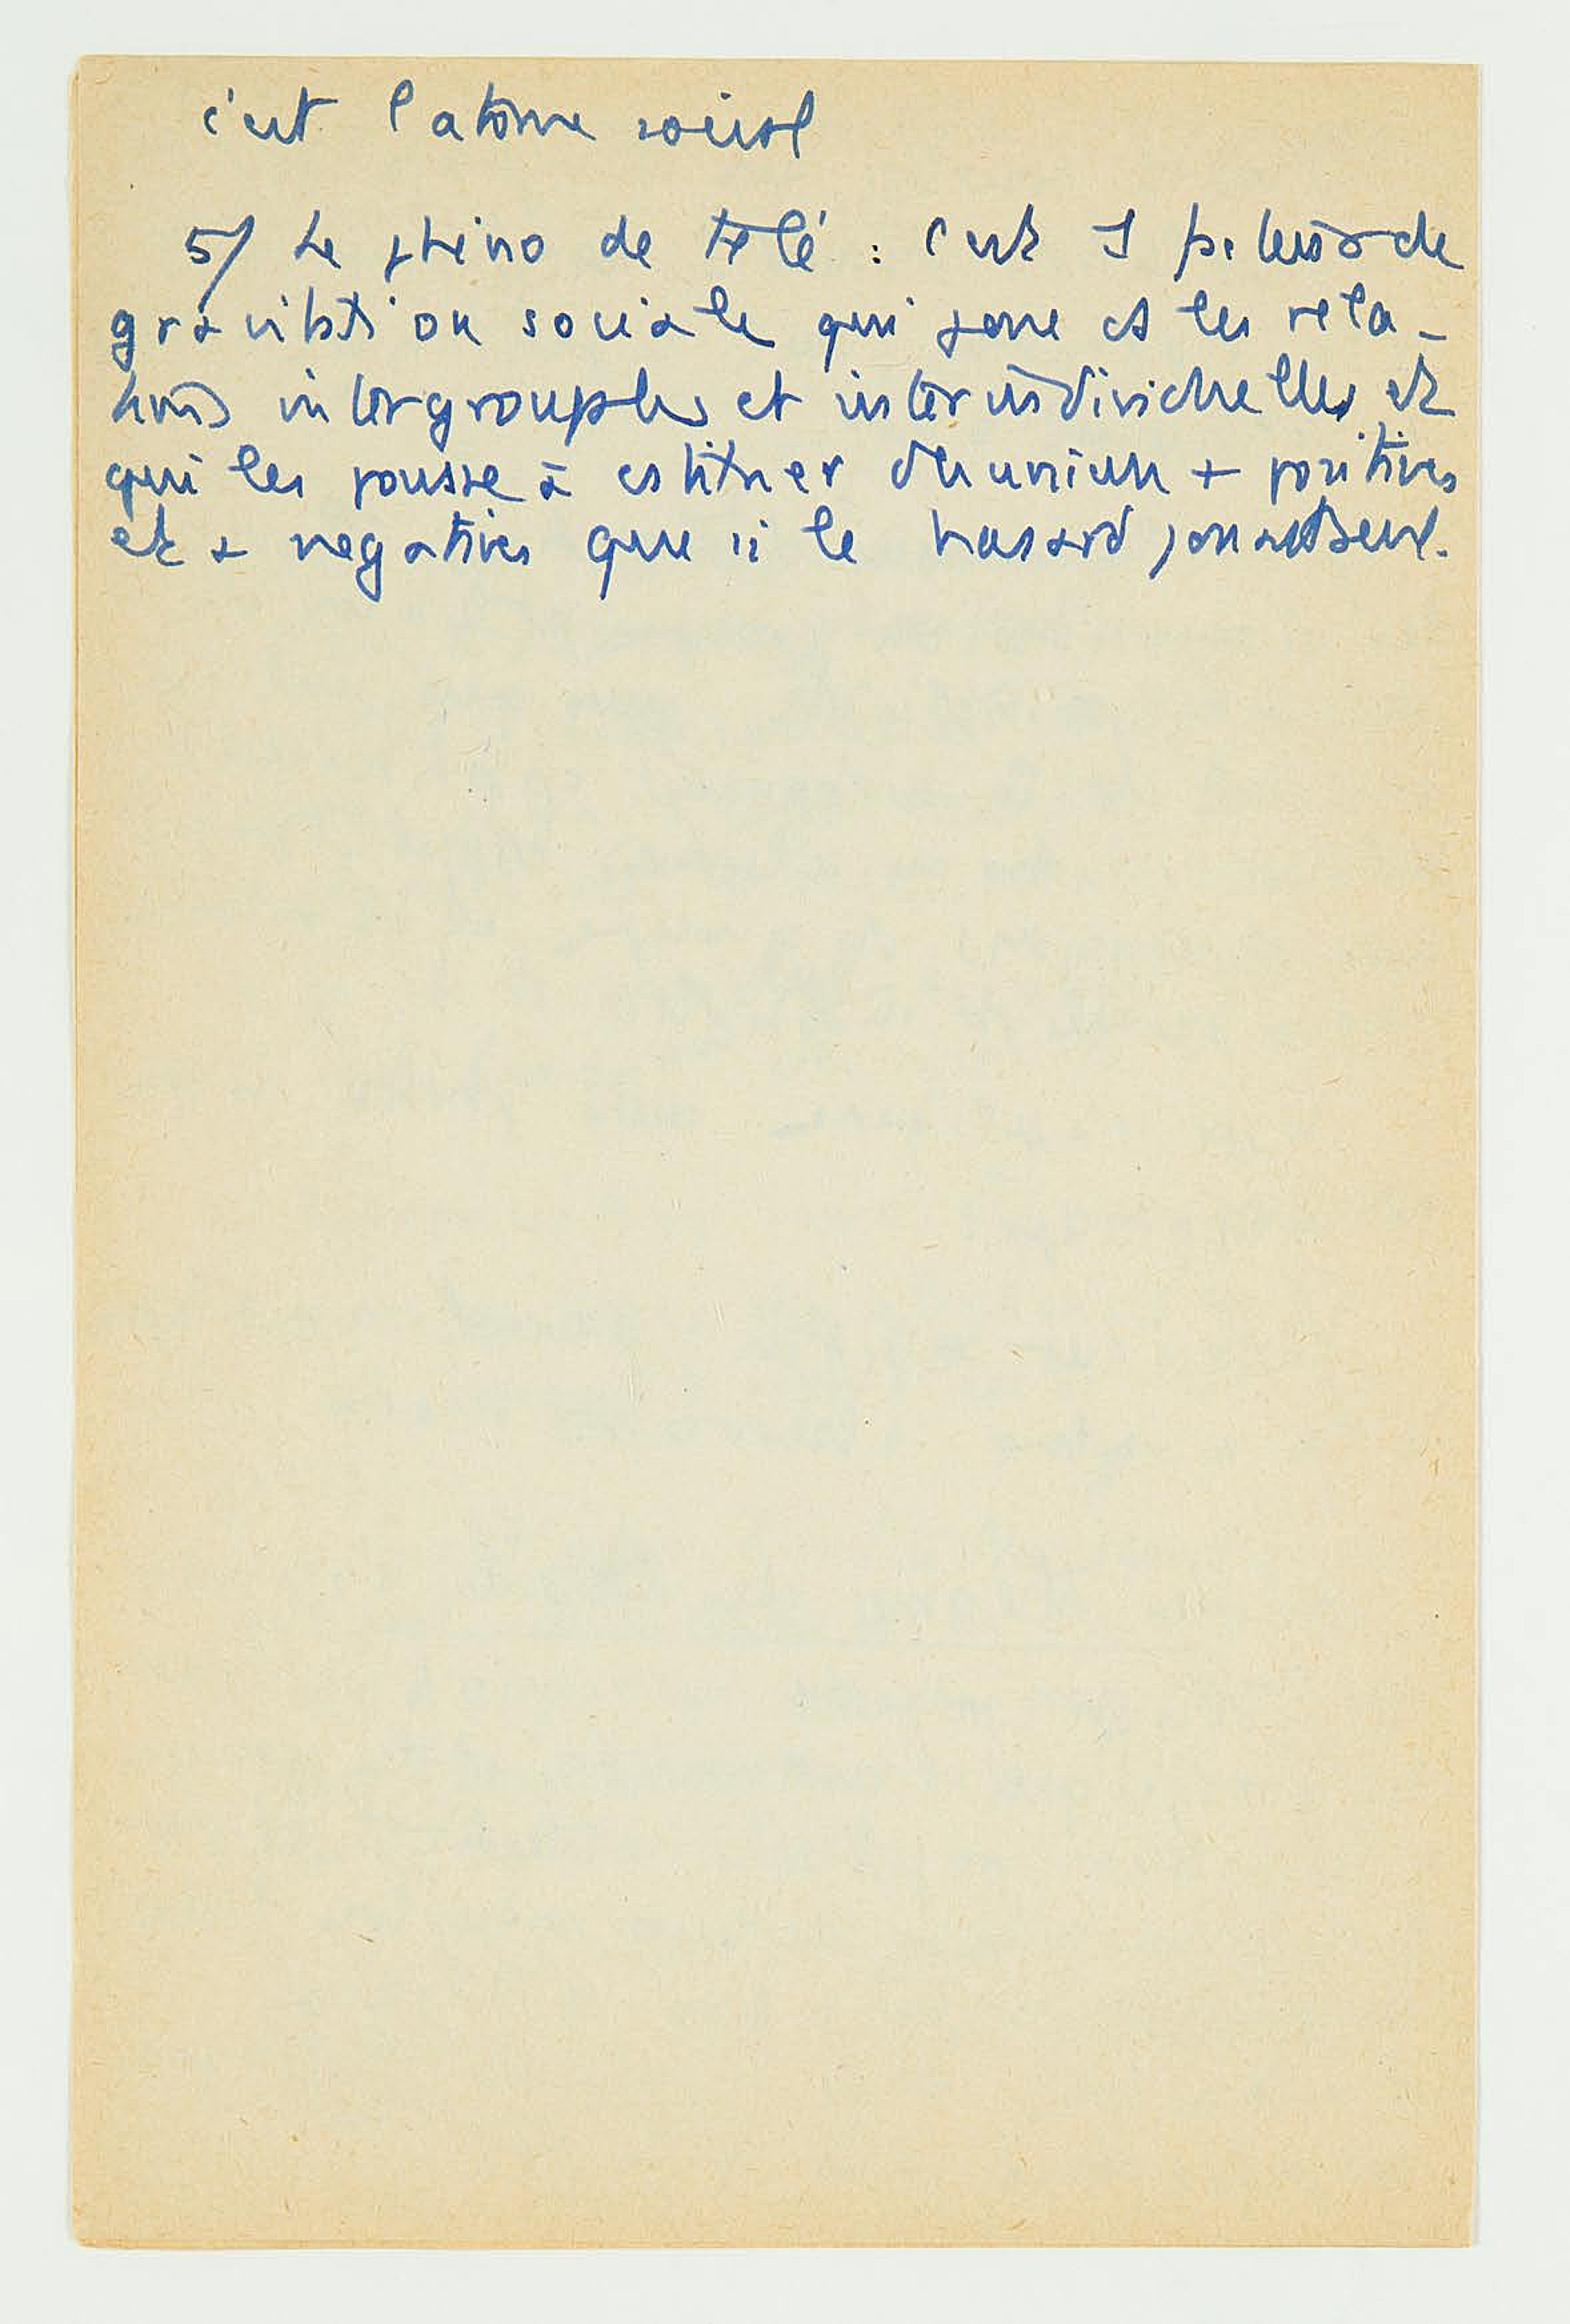 c'est l'atome social
5/ Le phéno de télé : c'est 1 de
gravitation sociale qui joue ds les rela-
tions intergroupales et interindividuelles et
qui les pousse à cstituer d'h unieux + positives
et + negatives que si le hasard jouait seul.